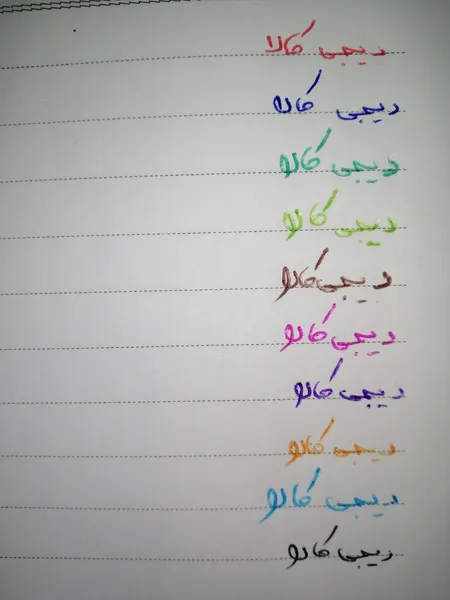 دیجی کالا
دیجی کالا
دیجی کالا
دیجی کالا
دیجی کالا
دیجی کالا
دیجی کالا
دیجی کالا
دیجی کالا
دیجی کالا